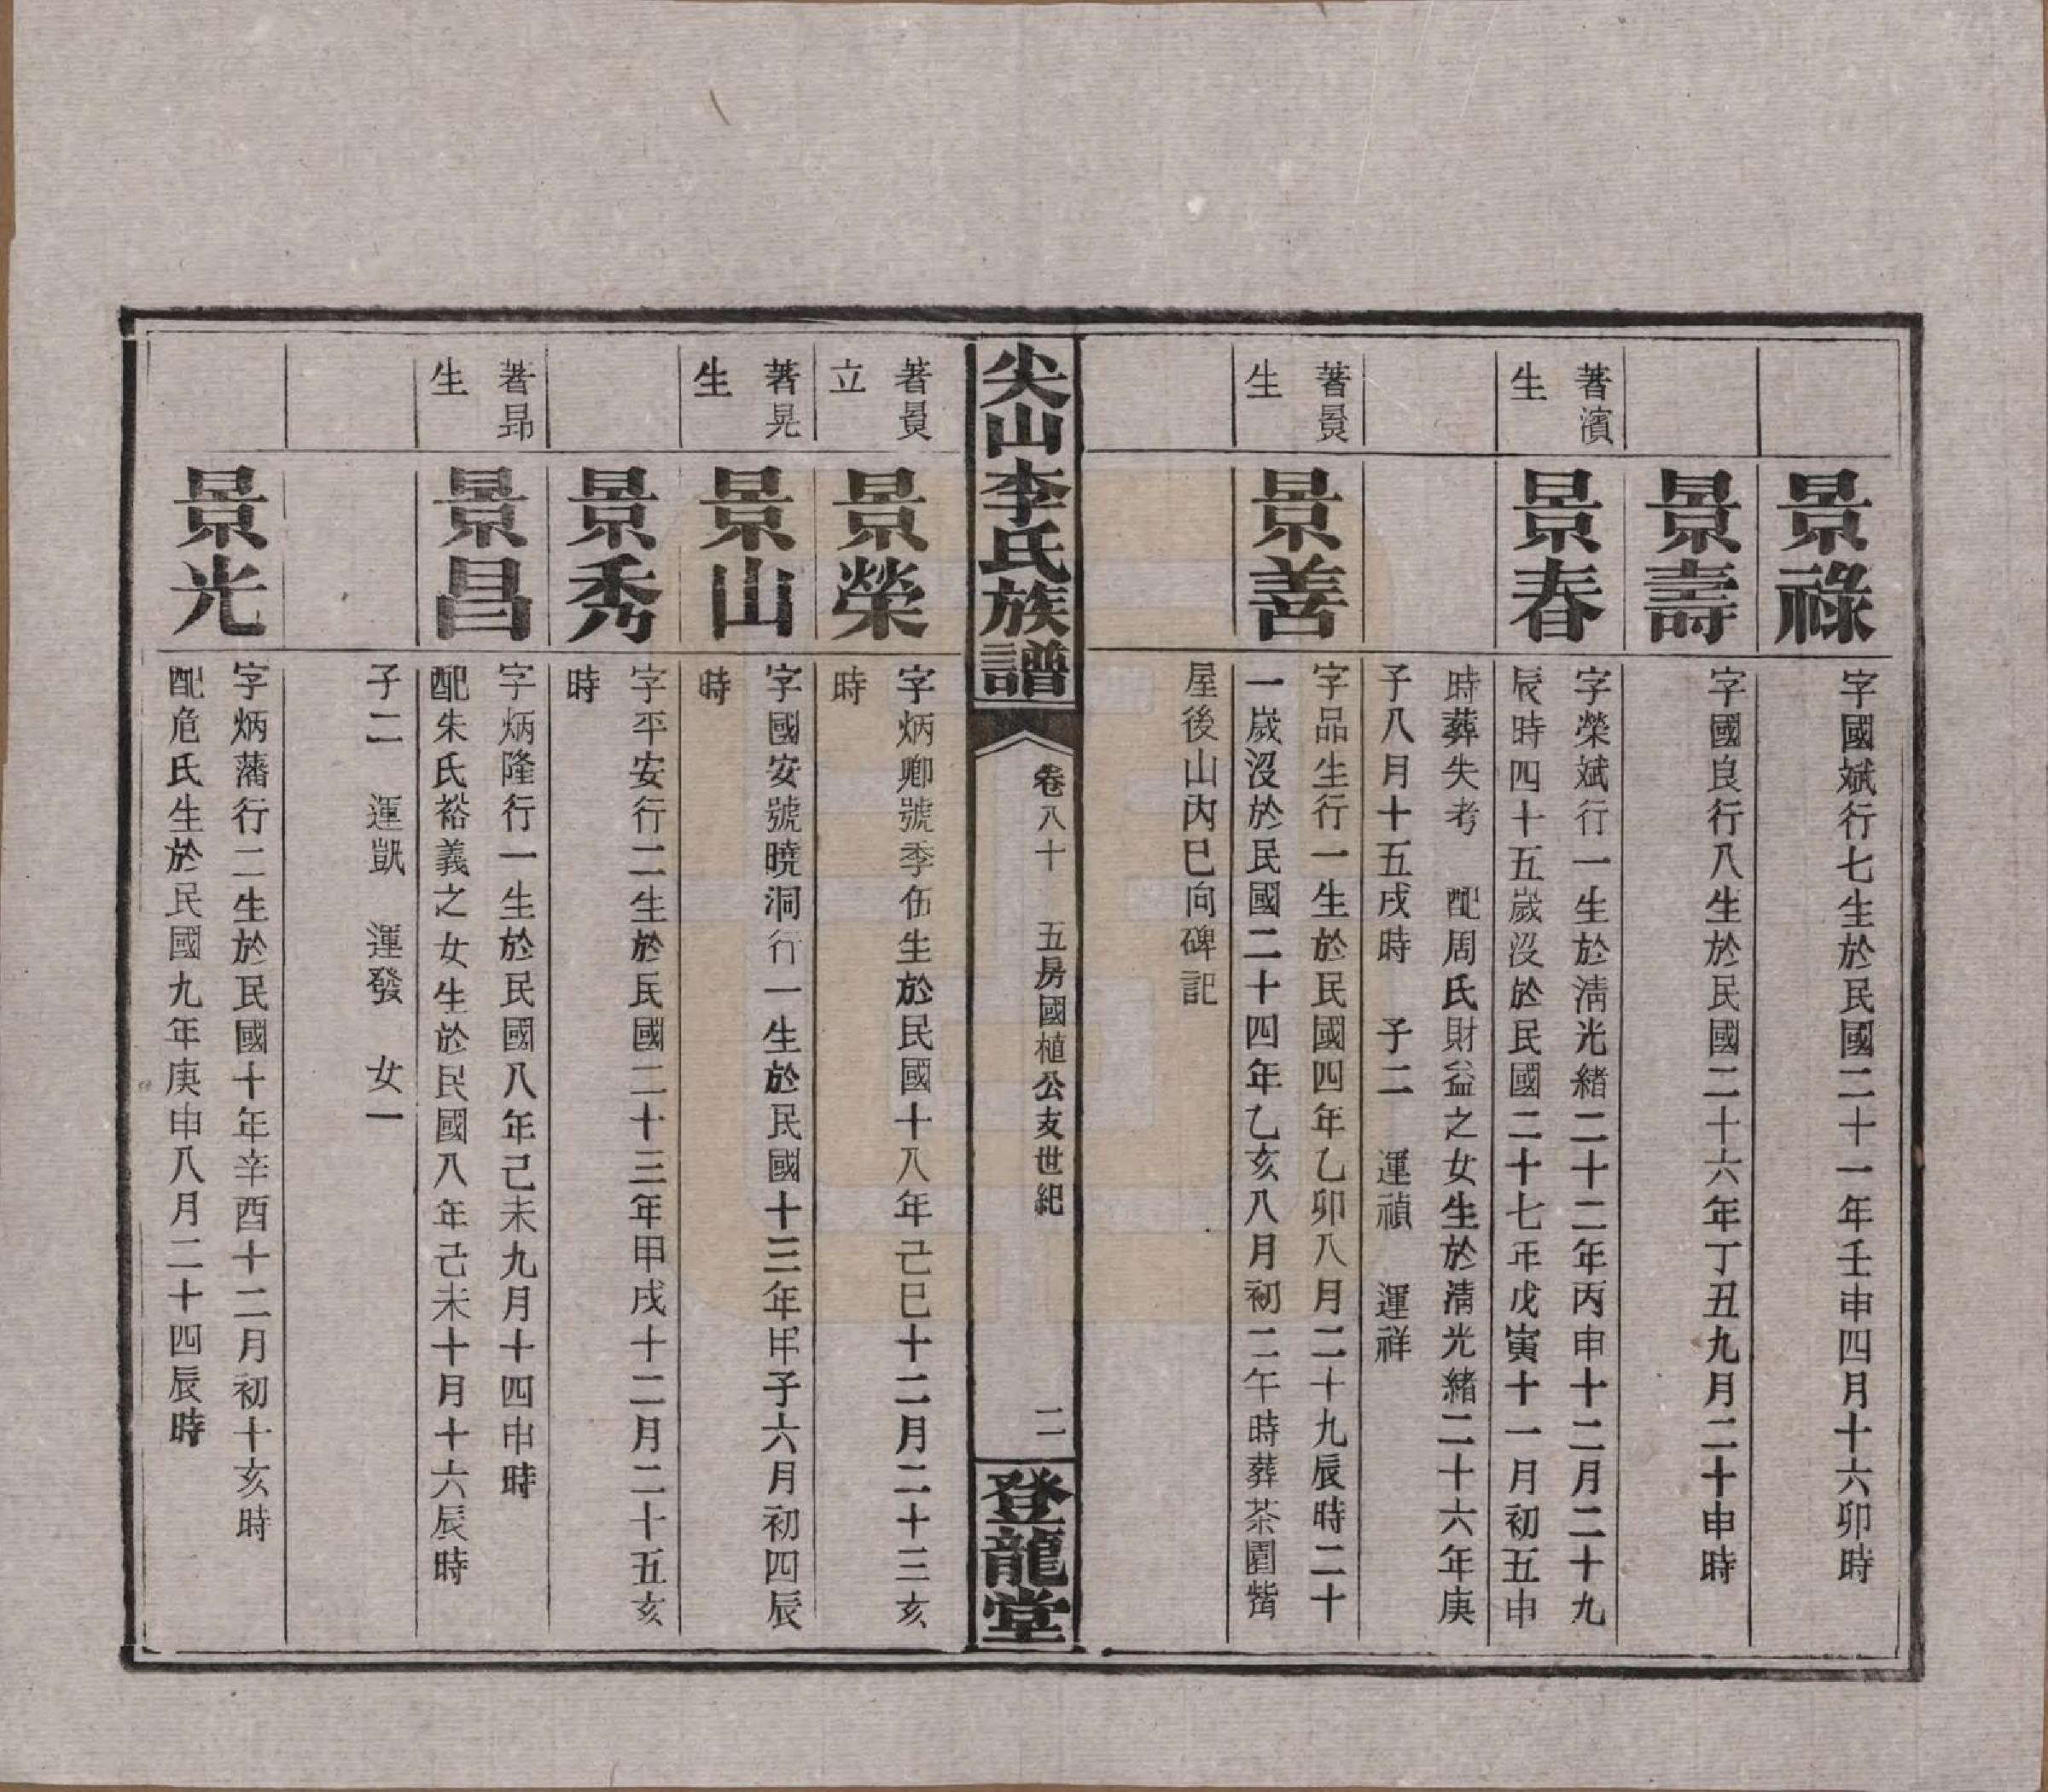 景祿
字國斌行七生於民國二十一年壬申四月十六卯時
景壽
字國良行八生於民國二十六年丁丑九月二十申時
著濱
生
景春
字榮斌行一生於清光緒二十二年丙申十二月二十九
辰時四十五歲沒於民國二十七年戊寅十一月初五申
時葬失考 配周氏財益之女生於清光緒二十六年庚
子八月十五戌時 子二 運禎 運祥
著員
生
景善
字品生行一生於民國四年乙卯八月二十九辰時二十
一歲沒於民國二十四年乙亥八月初二午時葬茶園觜
屋後山丙巳向碑記
尖山李氏族譜
卷八十 五房國植公支世紀
二
登龍堂
著員
立
景榮
字炳卿號季伍生於民國十八年己巳十二月二十三亥
時
著晃
生
景山
字國安號曉洞行一生於民國十三年甲子六月初四辰
時
景秀
字平安行二生於民國二十三年甲戌十二月二十五亥
時
著昻
生
景昌
字炳隆行一生於民國八年己未九月十四申時
配朱氏裕義之女生於民國八年己未十月十六辰時
子二 運凱 運發 女一
景光
字炳藩行二生於民國十年辛酉十二月初十亥時
配危氏生於民國九年庚申八月二十四辰時